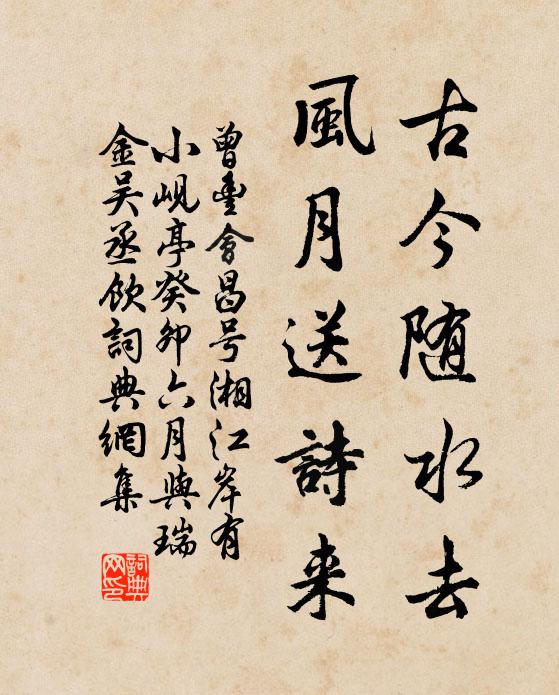 古今随水去
風月送詩来
曾豐會昌号湘江岸有
小峴亭癸卯六月與瑞
金吴丞飲詞典網集
詞典网印